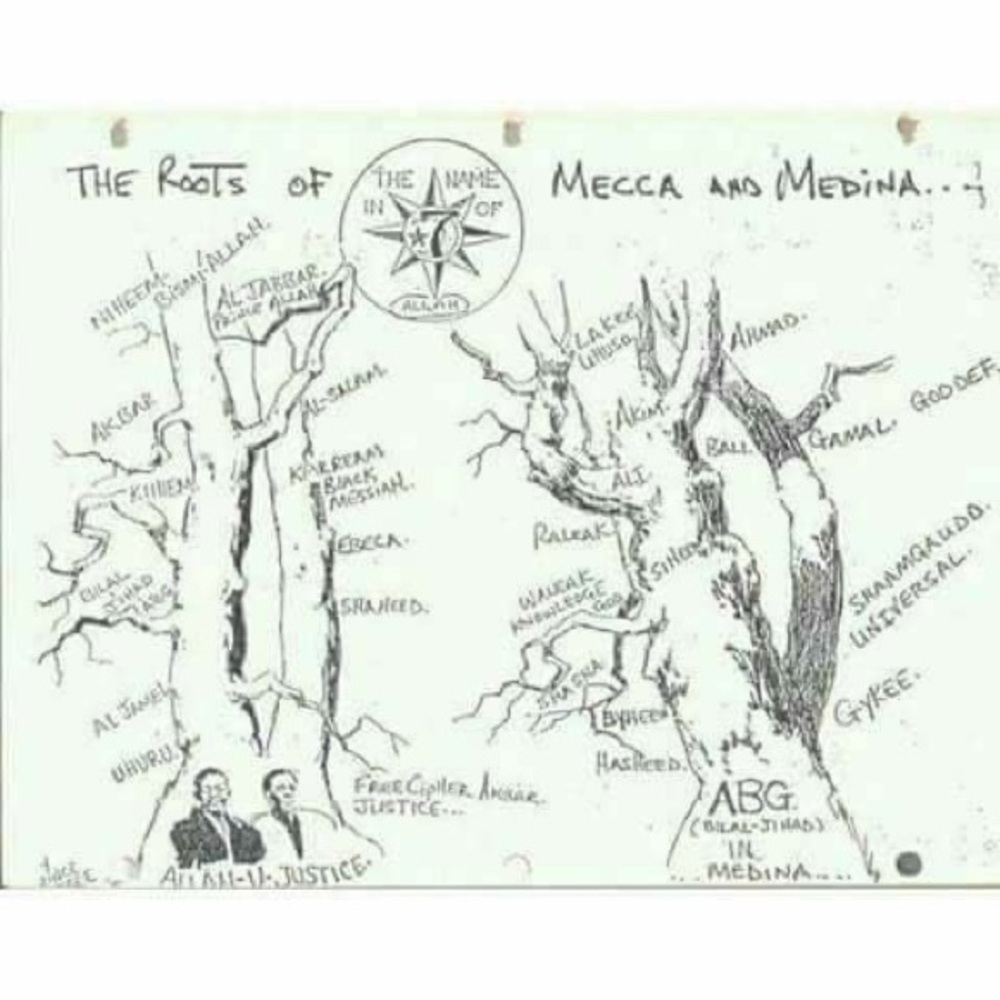 THE ROOTS OF
MECCA AND MEDINA...
THE NAME
IN OF
ALLAH
NIHEEM.
BISMI-ALLAH.
AL JABBAR.
PRINCE ALLAH
AKBAR
AL SALAAM.
KIHEEM
KARREAM
BLACK
MESSIAH.
EBECA.
BILAL
JIHAD
ABG
SHAHEED.
AL JAMEL
UHURU.
FREE CIPHER AKBAR.
JUSTICE...
ALLAH-U-JUSTICE.
LAKEE
UHUSO
AHMAD.
AKIM.
GOD DEF.
BALL
GAMAL.
ALI
RALEAK
SINCO
WALEAK
KNOWLEDGE
GOD
SHAAMGAUDD.
UNIVERSAL.
SHAEEM
BYHEEM
GYKEE.
HASHEED.
ABG
(BILAL-JIHAD)
IN
... MEDINA....